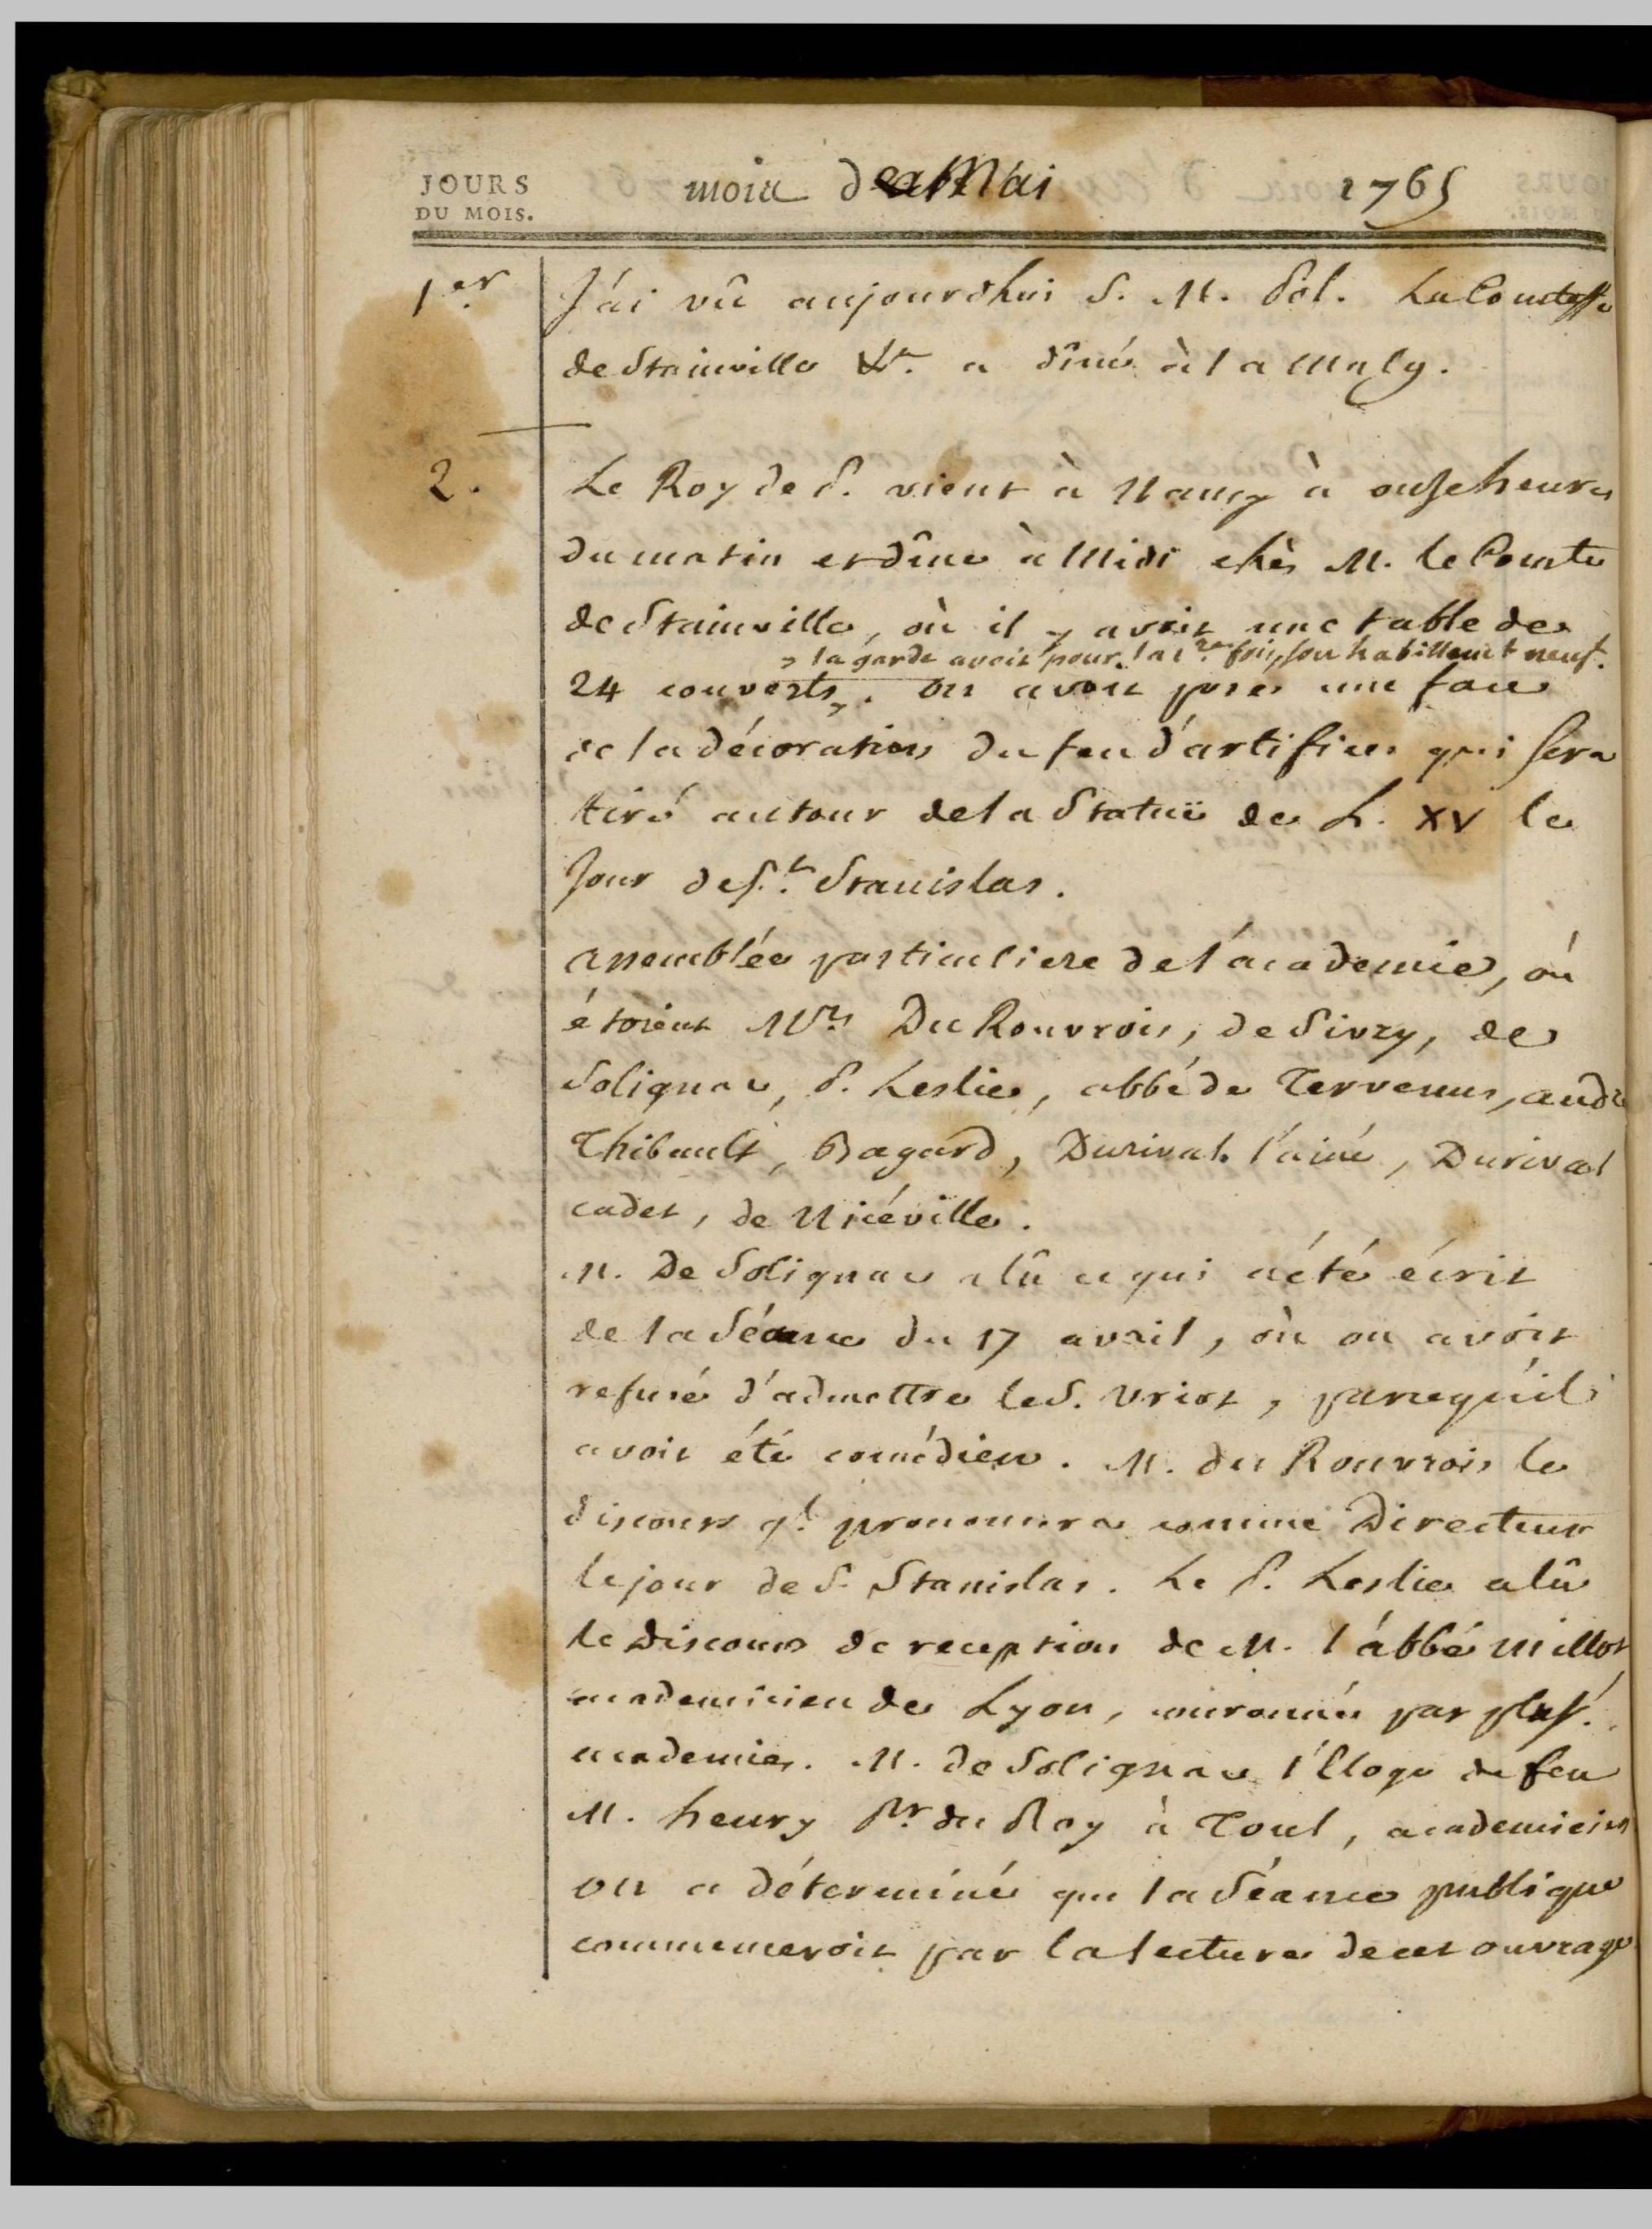 JOURS
DU MOIS.
mois de Mai 1765
1.er J'ai vû aujourdhui S. M. Pol. La Comtesse
de Stainville &a. a dîné à la Malg.
2. Le Roy de P. vient à Nancy à onze heures
du matin et dîne à Midi chès M. le Comte
de Stainville, où il y avoit une table de
, la garde avoit pour la 1.re fois son habillemt neuf.
24 couverts. On avoit posé une face
de la décoration du feu d'artifice qui sera
tiré autour de la Statuë de L. XV le
Jour de S.t Stanislas.
assemblée particuliere de l'academie, où
étoient Mrs Du Rouvrois, de Sivry, de
Solignac, P. Leslie, abbé de Tervenus, andré
Thibault, Bagard, Durival l'ainé, Durival
cadet, de Nicéville.
M. De Solignac a lû ce qui a été écrit
de la Séance du 17 avril, où on avoit
refusé d'admettre le S. Uriot, parcequ'il
avoit été comédien. M. du Rouvrois le
discours q.l prononcera comme Directeur
le jour de S. Stanislas. Le P. Leslie a lû
le Discours de reception de M. l'abbé Millot
academicien de Lyon, couronné par plus.
academies. M. de Solignac l'Eloge de feu
M. henry Pr. du Roy à Toul, academicien
on a déterminé que la Séance publique
commenceroit par la lecture de cet ouvrage